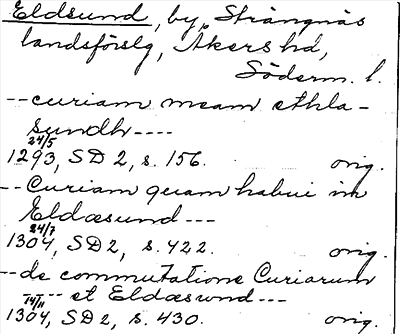 Eldsund, by, Strängnäs
landsförslg, Åkers hd,
Söderm. l.
--curiam meam ethla-
sundh----
24/5
1293, SD 2, s. 156. orig.
--Curiam quam habui in
Eldæsund---
24/7
1304, SD 2, s. 422. orig.
--de commutatione Curiarum
--- et Eldæsund---
14/11
1304, SD 2, s. 430. orig.